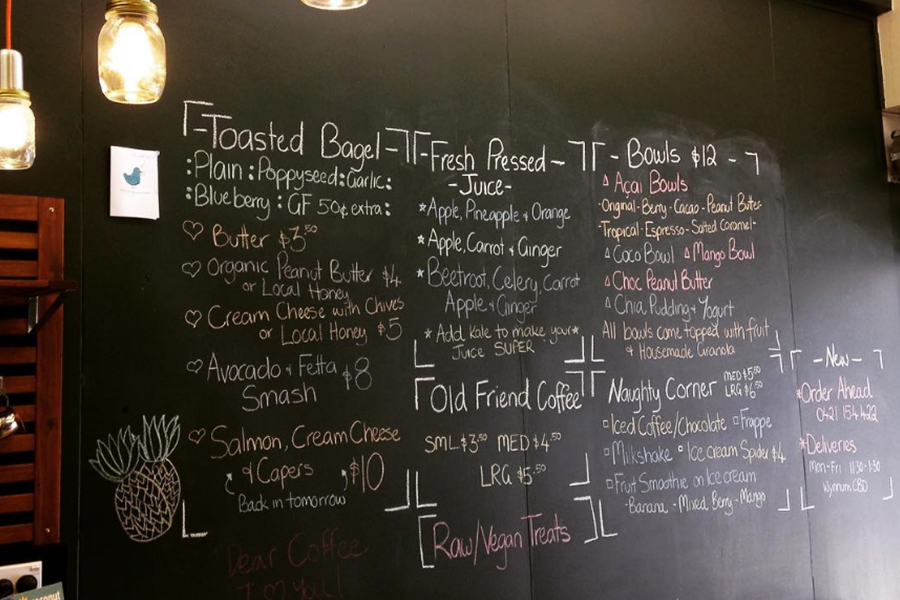 -Toasted Bagel-
:Plain :Poppyseed:Garlic:
:Blueberry : GF 50¢ extra:
Butter $3.50
Organic Peanut Butter $4
or Local Honey
Cream Cheese with Chives
or Local Honey $5
Avocado & Fetta
Smash $8
Salmon, Cream Cheese
& Capers $10
Back in tomorrow
Dear Coffee
-Fresh Pressed-
-Juice-
*Apple, Pineapple & Orange
*Apple, Carrot & Ginger
*Beetroot, Celery, Carrot
Apple & Ginger
*Add kale to make your*
Juice SUPER
Old Friend Coffee
SML $3.50 MED $4.50
LRG $5.50
Raw/Vegan Treats
- Bowls $12 -
Açai Bowls
-Original-Berry-Cacao-Peanut Butter-
-Tropical-Espresso-Salted Caramel-
Coco Bowl Mango Bowl
Choc Peanut Butter
Chia Pudding & Yogurt
All bowls come topped with fruit
& Housemade Granola
Naughty Corner MED $5.50
LRG $6.50
Iced Coffee/Chocolate Frappe
Milkshake Ice cream Spider $4
Fruit Smoothie on Ice cream
-Banana - Mixed Berry - Mango
-New-
*Order Ahead
0421 154 422
*Deliveries
Mon-Fri 11:30-1:30
Wynnum CBD